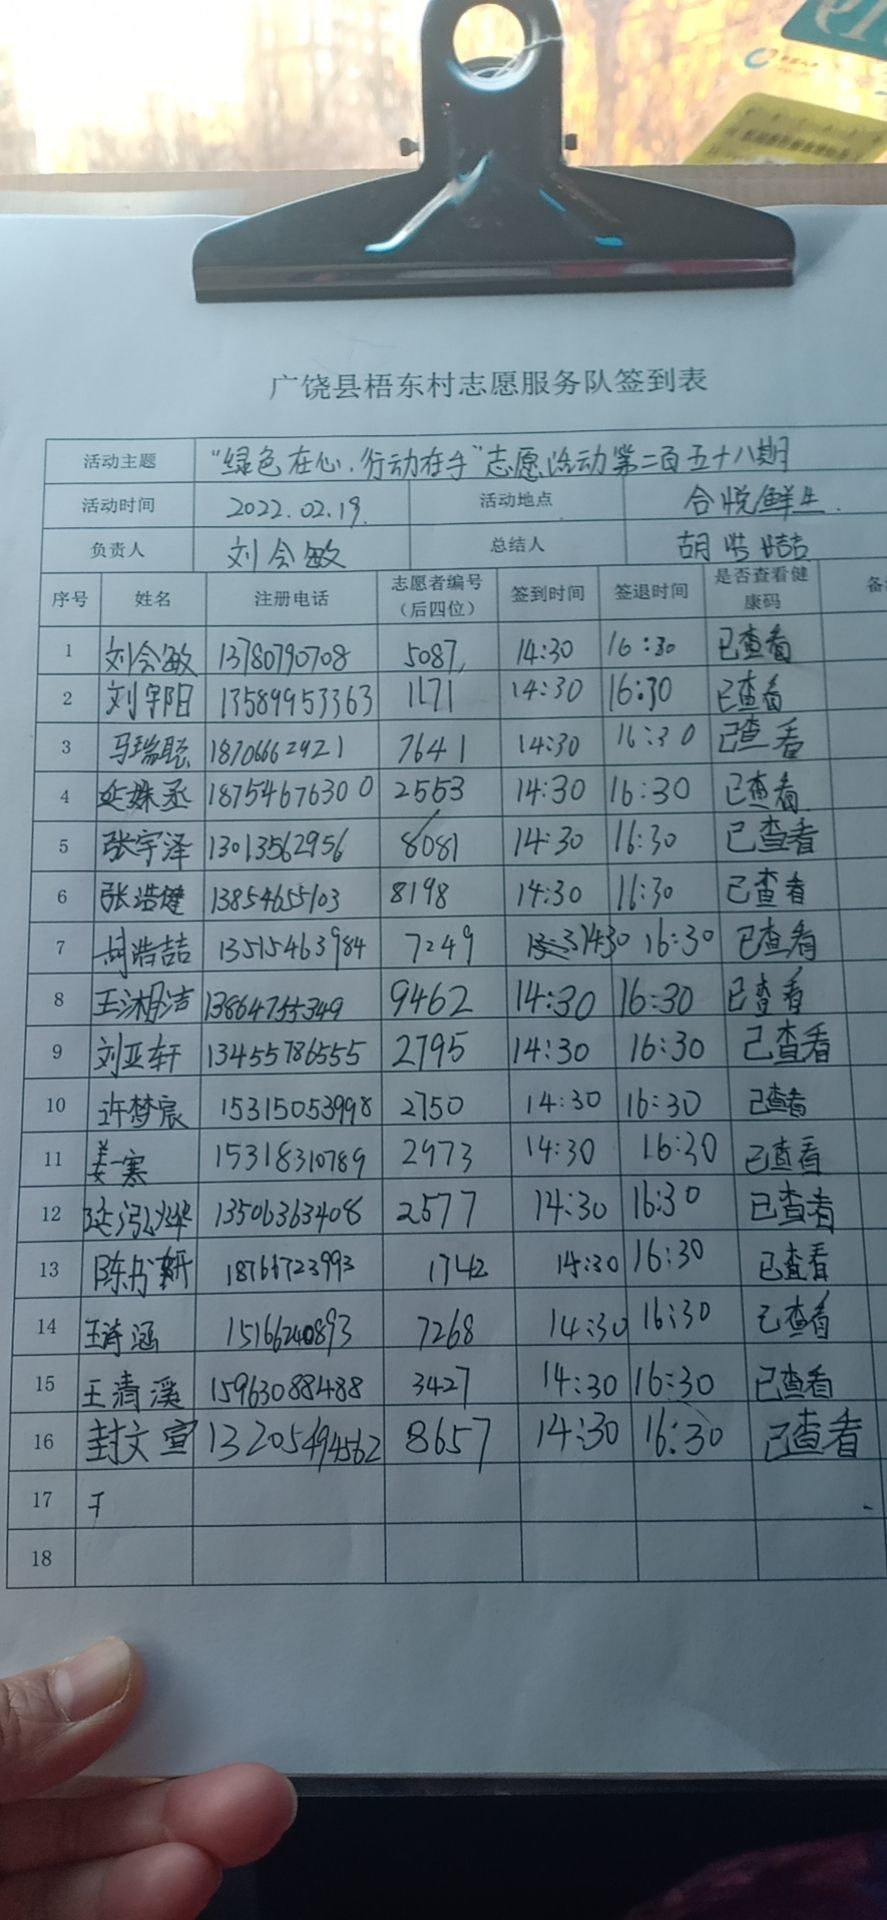 广饶县梧东村志愿服务队签到表
活动主题 “绿色在心，行动在手”志愿活动第二百五十八期
活动时间 2022.02.19. 活动地点 合悦鲜生.
负责人 刘会敏 总结人 胡浩喆
序号 姓名 注册电话 志愿者编号（后四位） 签到时间 签退时间 是否查看健康码
1 刘会敏 13780790708 5087 14:30 16:30 已查看
2 刘宇阳 13589953363 1171 14:30 16:30 已查看
3 马瑞聪 18706662921 7641 14:30 16:30 已查看
4 姝丞 18754676300 2553 14:30 16:30 已查看
5 张宇泽 13013562956 8081 14:30 16:30 已查看
6 张浩健 13854655103 8198 14:30 16:30 已查看
7 胡浩喆 13515463984 7249 14:30 16:30 已查看
8 王沐月洁 13864755349 9462 14:30 16:30 已查看
9 刘亚轩 13455786555 2795 14:30 16:30 已查看
10 许梦宸 15315053998 2750 14:30 16:30 已查看
11 姜一寒 15318310789 2973 14:30 16:30 已查看
12 13506363408 2577 14:30 16:30 已查看
13 陈书轩 18766723993 1742 14:30 16:30 已查看
14 王涵 15166240893 7268 14:30 16:30 已查看
15 王清溪 15963088488 3427 14:30 16:30 已查看
16 封文宣 13205494562 8657 14:30 16:30 已查看
17
18